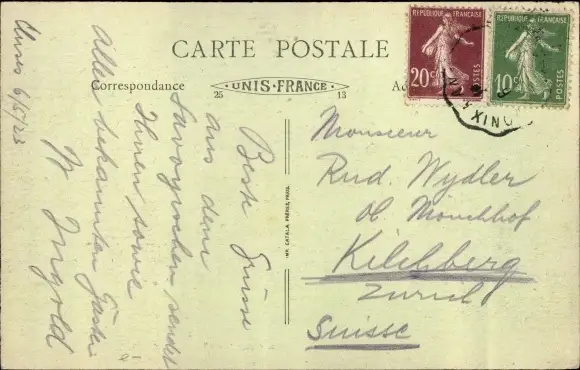 CARTE POSTALE
Correspondance
UNIS-FRANCE
25 13
RÉPUBLIQUE FRANÇAISE
20c
POSTES
RÉPUBLIQUE FRANÇAISE
10c
POSTES
IMP. CATALA FRÈRES, PARIS
6/5/23
Beste Grüsse
aus dem
Savoyischen sendet
Ihnen sowie
Allen bekannten
W. Ingold
Monsieur
Rud. Wydler
ob. Mönchhof
Kilchberg
Zürich
Suisse